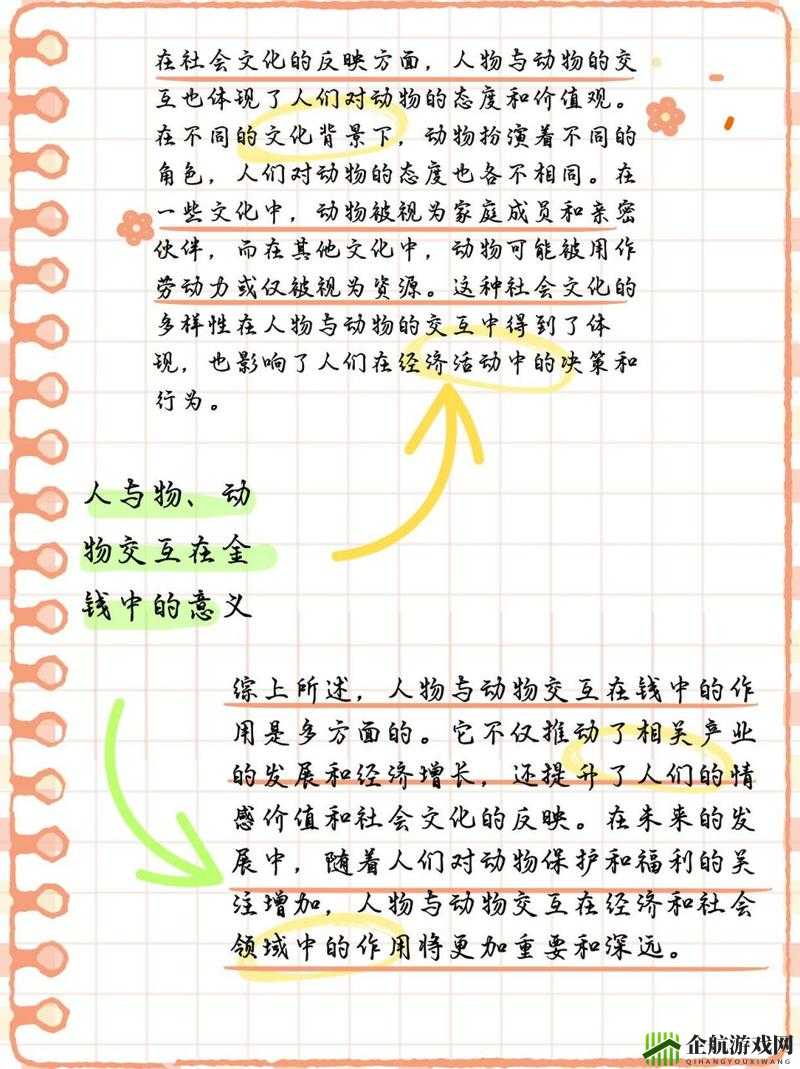 在社会文化的反映方面，人物与动物的交
互也体现了人们对动物的态度和价值观。
在不同的文化背景下，动物扮演着不同的
角色，人们对动物的态度也各不相同。在
一些文化中，动物被视为家庭成员和亲密
伙伴，而在其他文化中，动物可能被用作
劳动力或仅被视为资源。这种社会文化的
多样性在人物与动物的交互中得到了体
现，也影响了人们在经济活动中的决策和
行为。
人与物、动
物交互在金
钱中的意义
综上所述，人物与动物交互在钱中的作
用是多方面的。它不仅推动了相关产业
的发展和经济增长，还提升了人们的情
感价值和社会文化的反映。在未来的发
展中，随着人们对动物保护和福利的关
注增加，人物与动物交互在经济和社会
领域中的作用将更加重要和深远。
企航游戏网
QIHANGYOUXIWANG